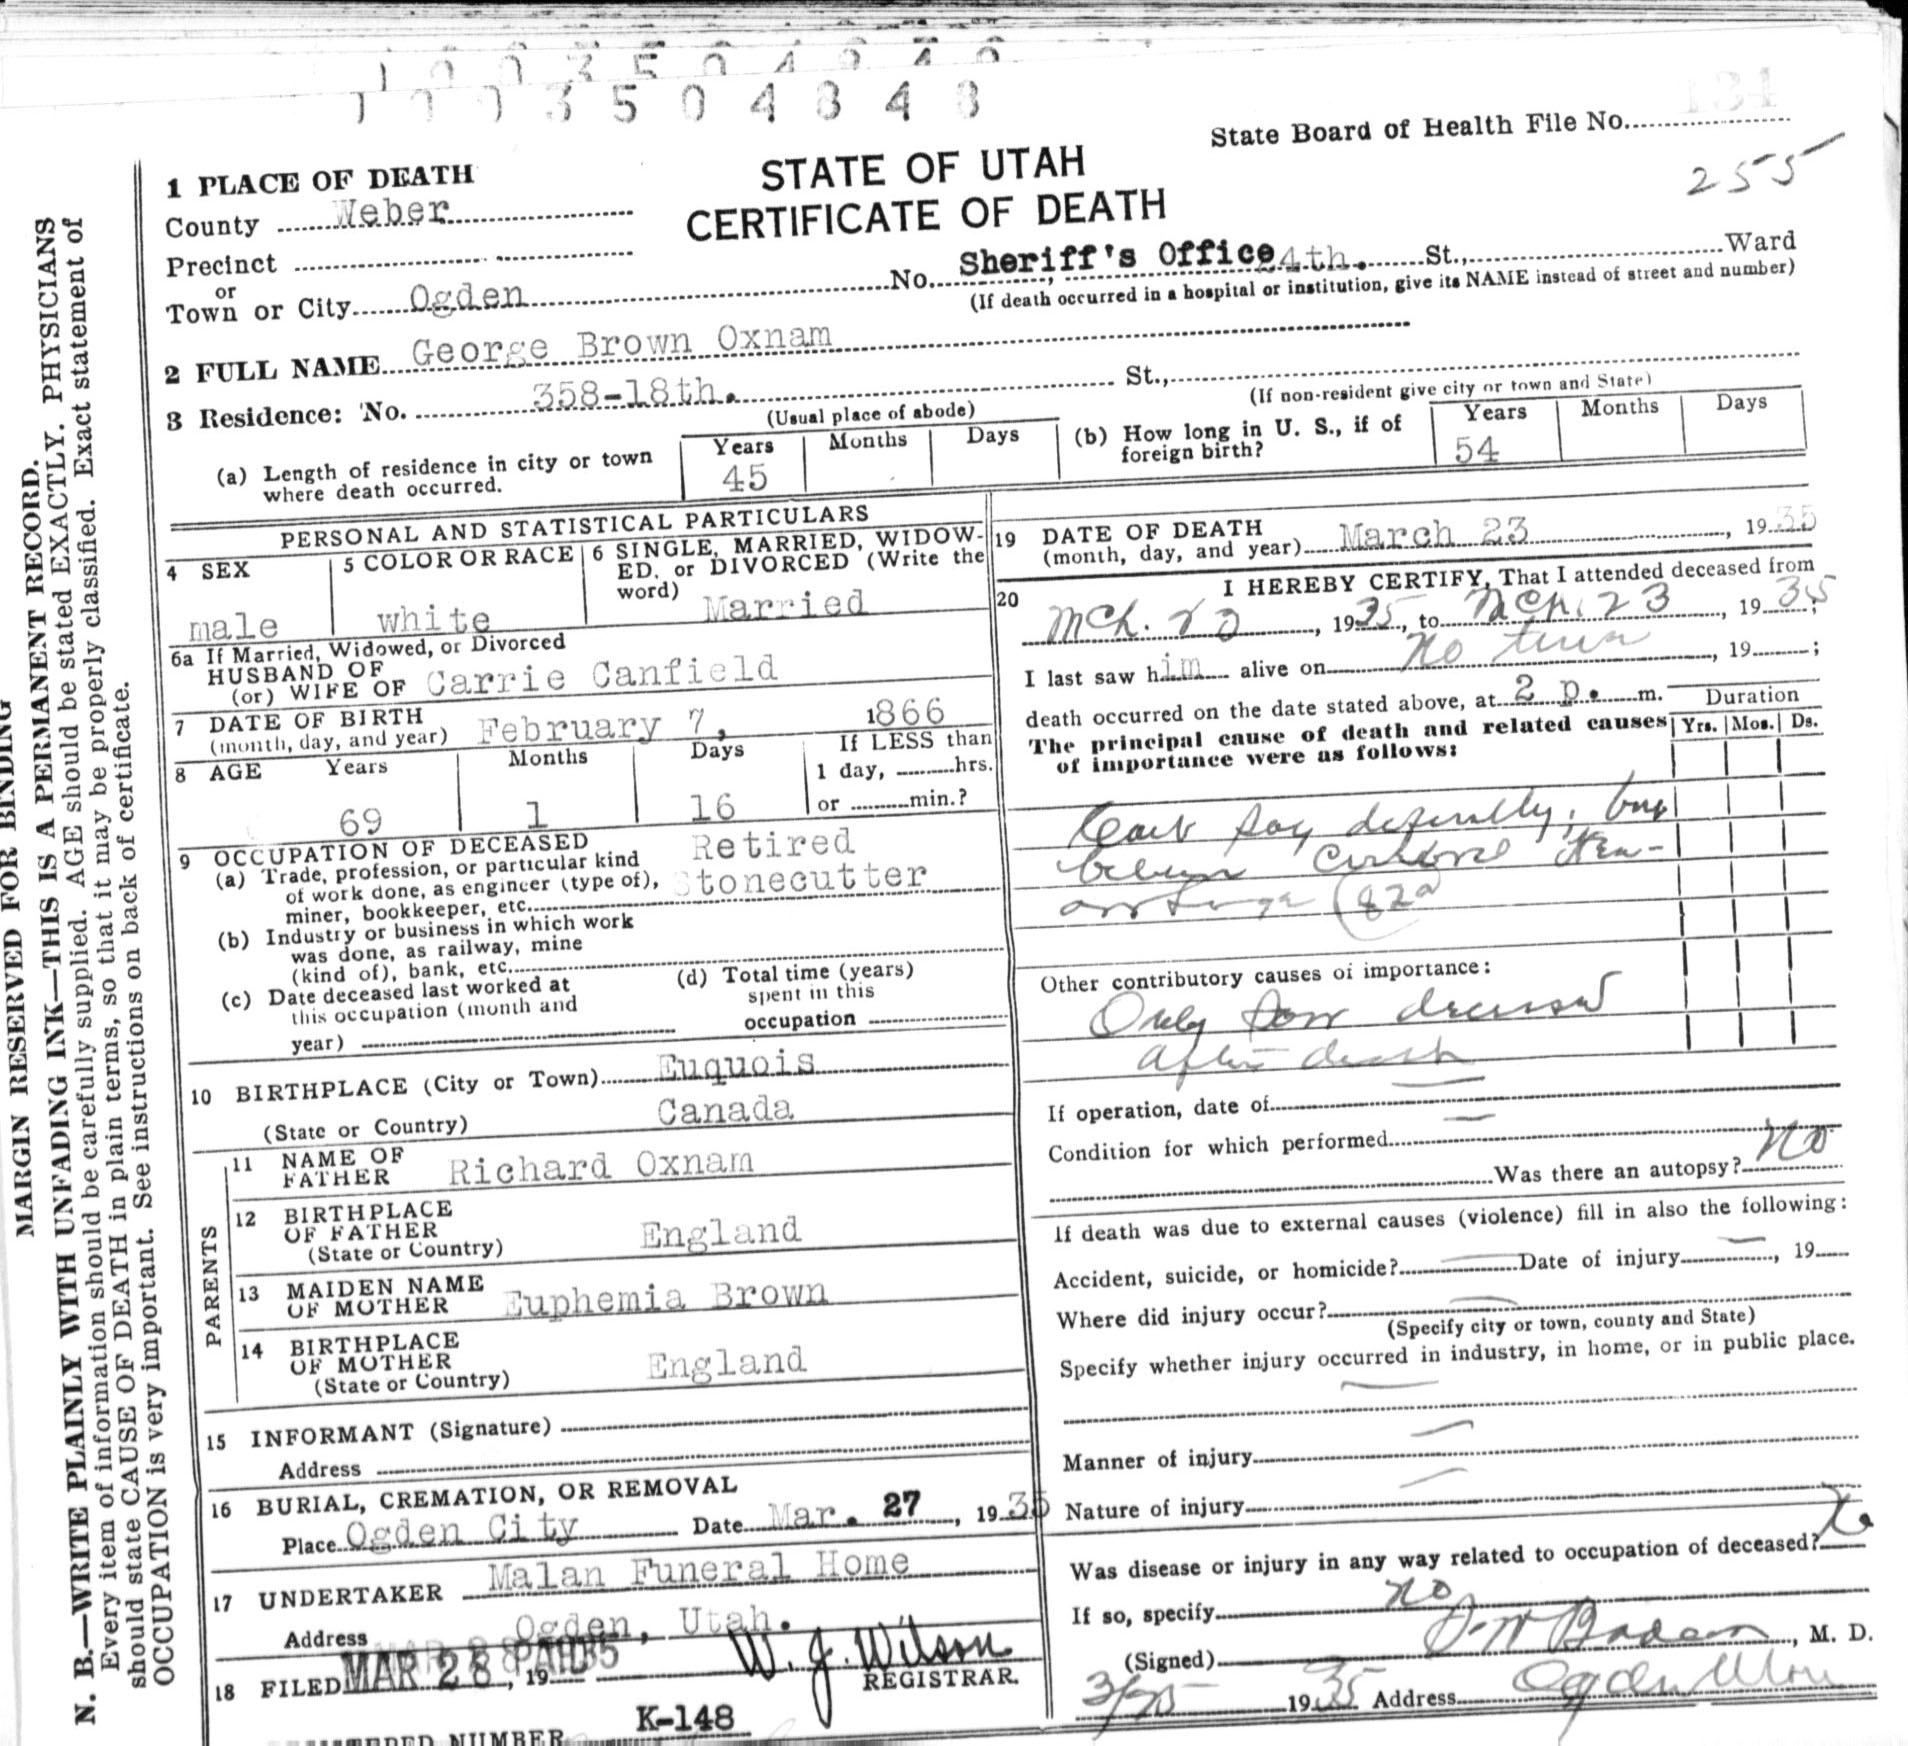 1003504848
State Board of Health File No. 134
255
STATE OF UTAH
CERTIFICATE OF DEATH
1 PLACE OF DEATH
County Weber
Precinct
or
Town or City Ogden No. Sheriff's Office 24th. St., Ward
(If death occurred in a hospital or institution, give its NAME instead of street and number)
2 FULL NAME George Brown Oxnam
3 Residence: No. 358-18th. St.,
(Usual place of abode) (If non-resident give city or town and State)
(a) Length of residence in city or town where death occurred. Years 45 Months Days
(b) How long in U. S., if of foreign birth? Years 54 Months Days
PERSONAL AND STATISTICAL PARTICULARS
4 SEX male
5 COLOR OR RACE white
6 SINGLE, MARRIED, WIDOW-
ED, or DIVORCED (Write the
word) Married
6a If Married, Widowed, or Divorced
HUSBAND OF
(or) WIFE OF Carrie Canfield
7 DATE OF BIRTH
(month, day, and year) February 7, 1866
8 AGE Years 69 Months 1 Days 16
If LESS than
1 day, hrs.
or min.?
9 OCCUPATION OF DECEASED Retired
(a) Trade, profession, or particular kind
of work done, as engineer (type of), stonecutter
miner, bookkeeper, etc.
(b) Industry or business in which work
was done, as railway, mine
(kind of), bank, etc.
(c) Date deceased last worked at
this occupation (month and
year)
(d) Total time (years)
spent in this
occupation
10 BIRTHPLACE (City or Town) Euquois
(State or Country) Canada
PARENTS
11 NAME OF
FATHER Richard Oxnam
12 BIRTHPLACE
OF FATHER
(State or Country) England
13 MAIDEN NAME
OF MOTHER Euphemia Brown
14 BIRTHPLACE
OF MOTHER
(State or Country) England
15 INFORMANT (Signature)
Address
16 BURIAL, CREMATION, OR REMOVAL
Place Ogden City Date Mar. 27, 1935
17 UNDERTAKER Malan Funeral Home
Address Ogden, Utah.
18 FILED MAR 28, 1935 W. J. Wilson
REGISTRAR.
K-148
NUMBER
19 DATE OF DEATH
(month, day, and year) March 23, 1935
20 I HEREBY CERTIFY, That I attended deceased from
Mch. 23, 1935, to Mch. 23, 1935;
I last saw him alive on No time, 19 ;
death occurred on the date stated above, at 2 p. m.
Duration
Yrs. Mos. Ds.
The principal cause of death and related causes
of importance were as follows:
Can't say definitely, but
believe
(82a
Other contributory causes of importance:
Only saw deceased
after death
If operation, date of
Condition for which performed
Was there an autopsy? No
If death was due to external causes (violence) fill in also the following:
Accident, suicide, or homicide? Date of injury , 19
Where did injury occur?
(Specify city or town, county and State)
Specify whether injury occurred in industry, in home, or in public place.
Manner of injury
Nature of injury
Was disease or injury in any way related to occupation of deceased?
If so, specify no
(Signed) , M. D.
3/25 1935 Address Ogden Utah
MARGIN RESERVED FOR BINDING
N. B.—WRITE PLAINLY WITH UNFADING INK—THIS IS A PERMANENT RECORD.
Every item of information should be carefully supplied. AGE should be stated EXACTLY. PHYSICIANS
should state CAUSE OF DEATH in plain terms, so that it may be properly classified. Exact statement of
OCCUPATION is very important. See instructions on back of certificate.